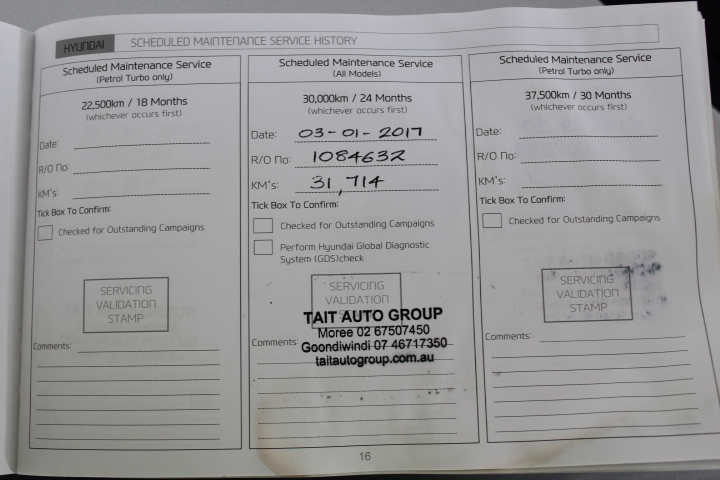 HYUNDAI SCHEDULED MAINTENANCE SERVICE HISTORY
Scheduled Maintenance Service
(Petrol Turbo only)
22,500km / 18 Months
(whichever occurs first)
Date:
R/O No:
KM's:
Tick Box To Confirm:
Checked for Outstanding Campaigns
SERVICING
VALIDATION
STAMP
Comments:
Scheduled Maintenance Service
(All Models)
30,000km / 24 Months
(whichever occurs first)
Date: 03-01-2017
R/O No: 1084632
KM's: 31,714
Tick Box To Confirm:
Checked for Outstanding Campaigns
Perform Hyundai Global Diagnostic
System (GDS)check
SERVICING
VALIDATION
STAMP
TAIT AUTO GROUP
Moree 02 67507450
Comments:
Goondiwindi 07 46717350
taitautogroup.com.au
Scheduled Maintenance Service
(Petrol Turbo only)
37,500km / 30 Months
(whichever occurs first)
Date:
R/O No:
KM's:
Tick Box To Confirm:
Checked for Outstanding Campaigns
SERVICING
VALIDATION
STAMP
Comments:
16